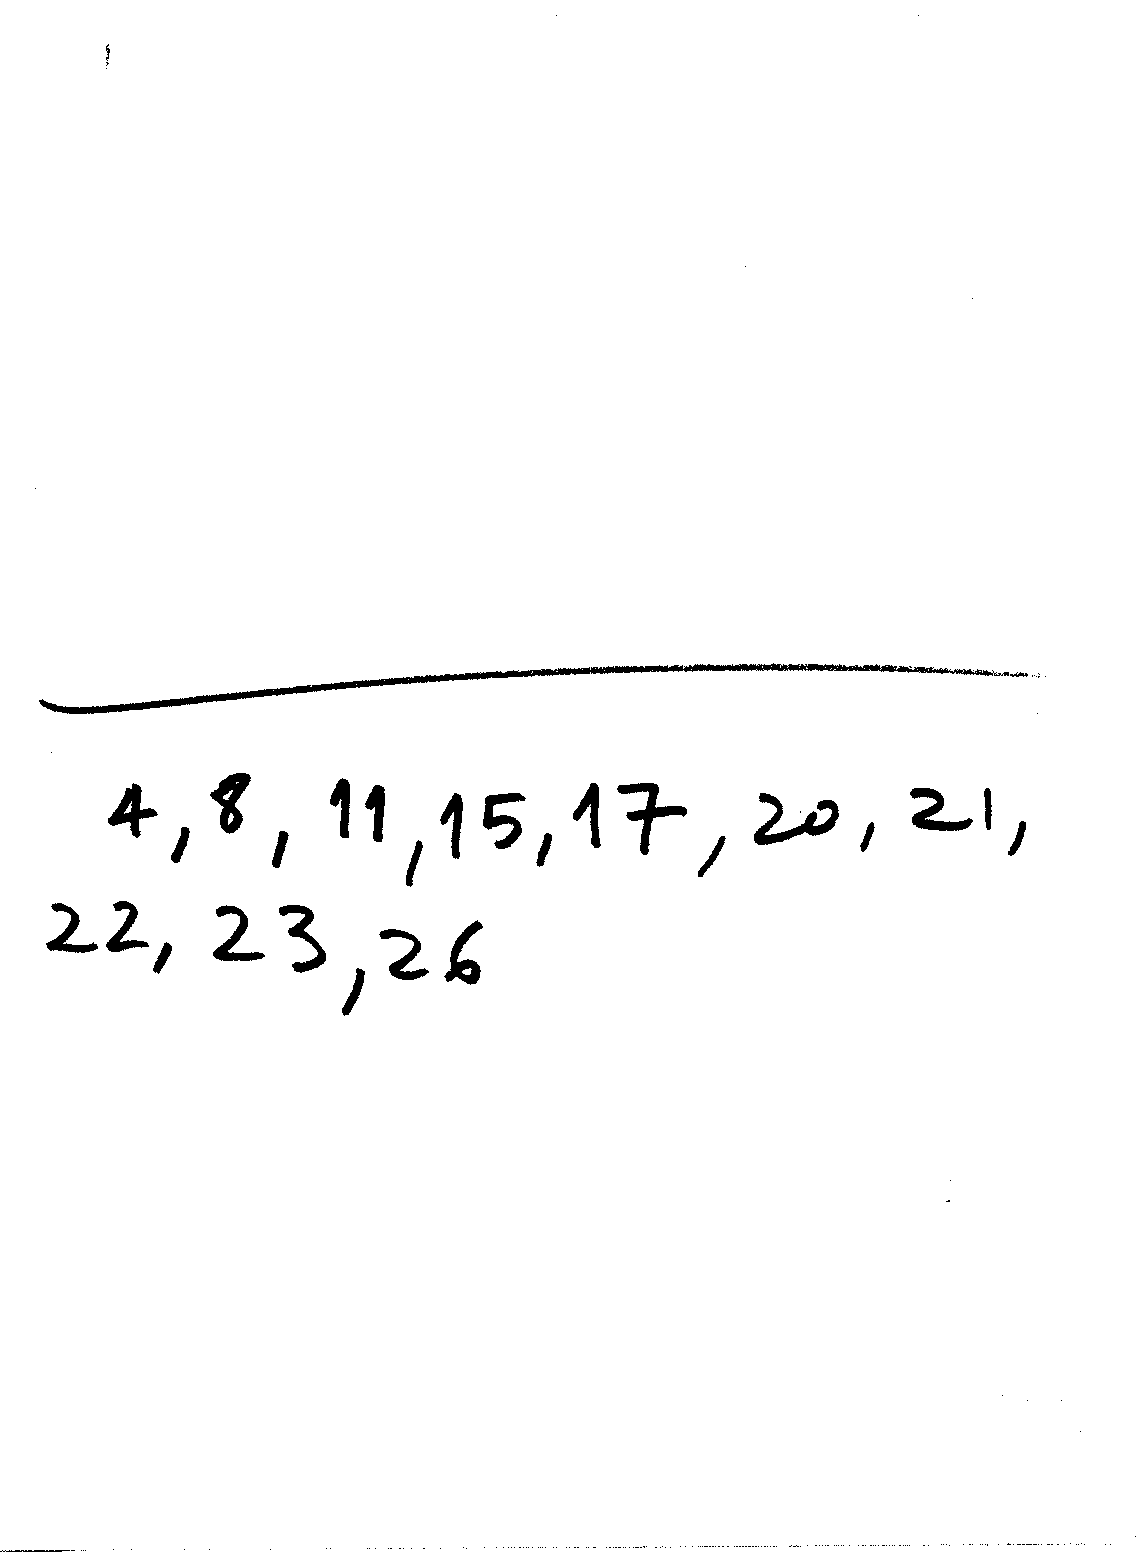 4, 8, 11, 15, 17, 20, 21,
22, 23, 26